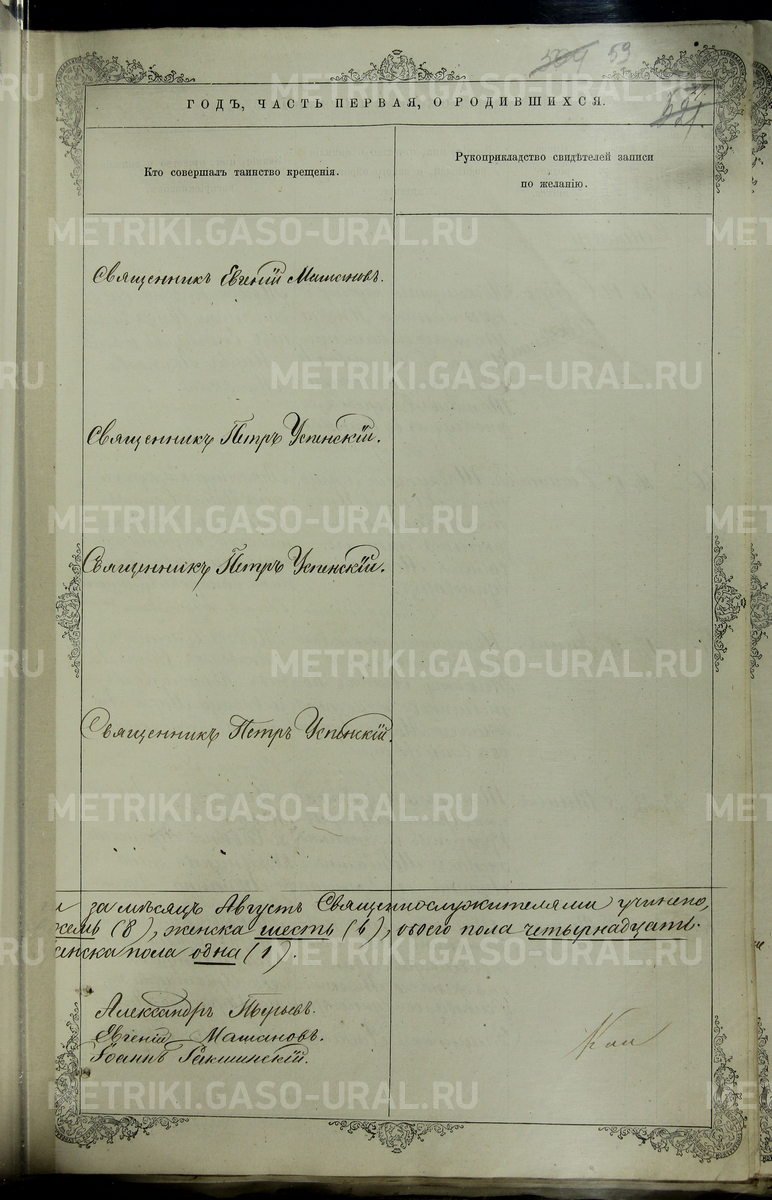 59
ГОДЪ, ЧАСТЬ ПЕРВАЯ, О РОДИВШИХСЯ.
Кто совершалъ таинство крещенія.
Рукоприкладство свидѣтелей записи
по желанію.
Священникъ Евгеній Машановъ.
Священникъ Петръ Успенскій.
Священникъ Петръ Успенскій.
Священникъ Петръ Успенскій.
за мѣсяцъ Августъ Священнослужителями учинено,
(8), женска шесть (6), обоего пола четырнадцать.
пола одна (1).
Александръ
Евгеній Машановъ.
Іоаннъ
METRIKI.GASO-URAL.RU